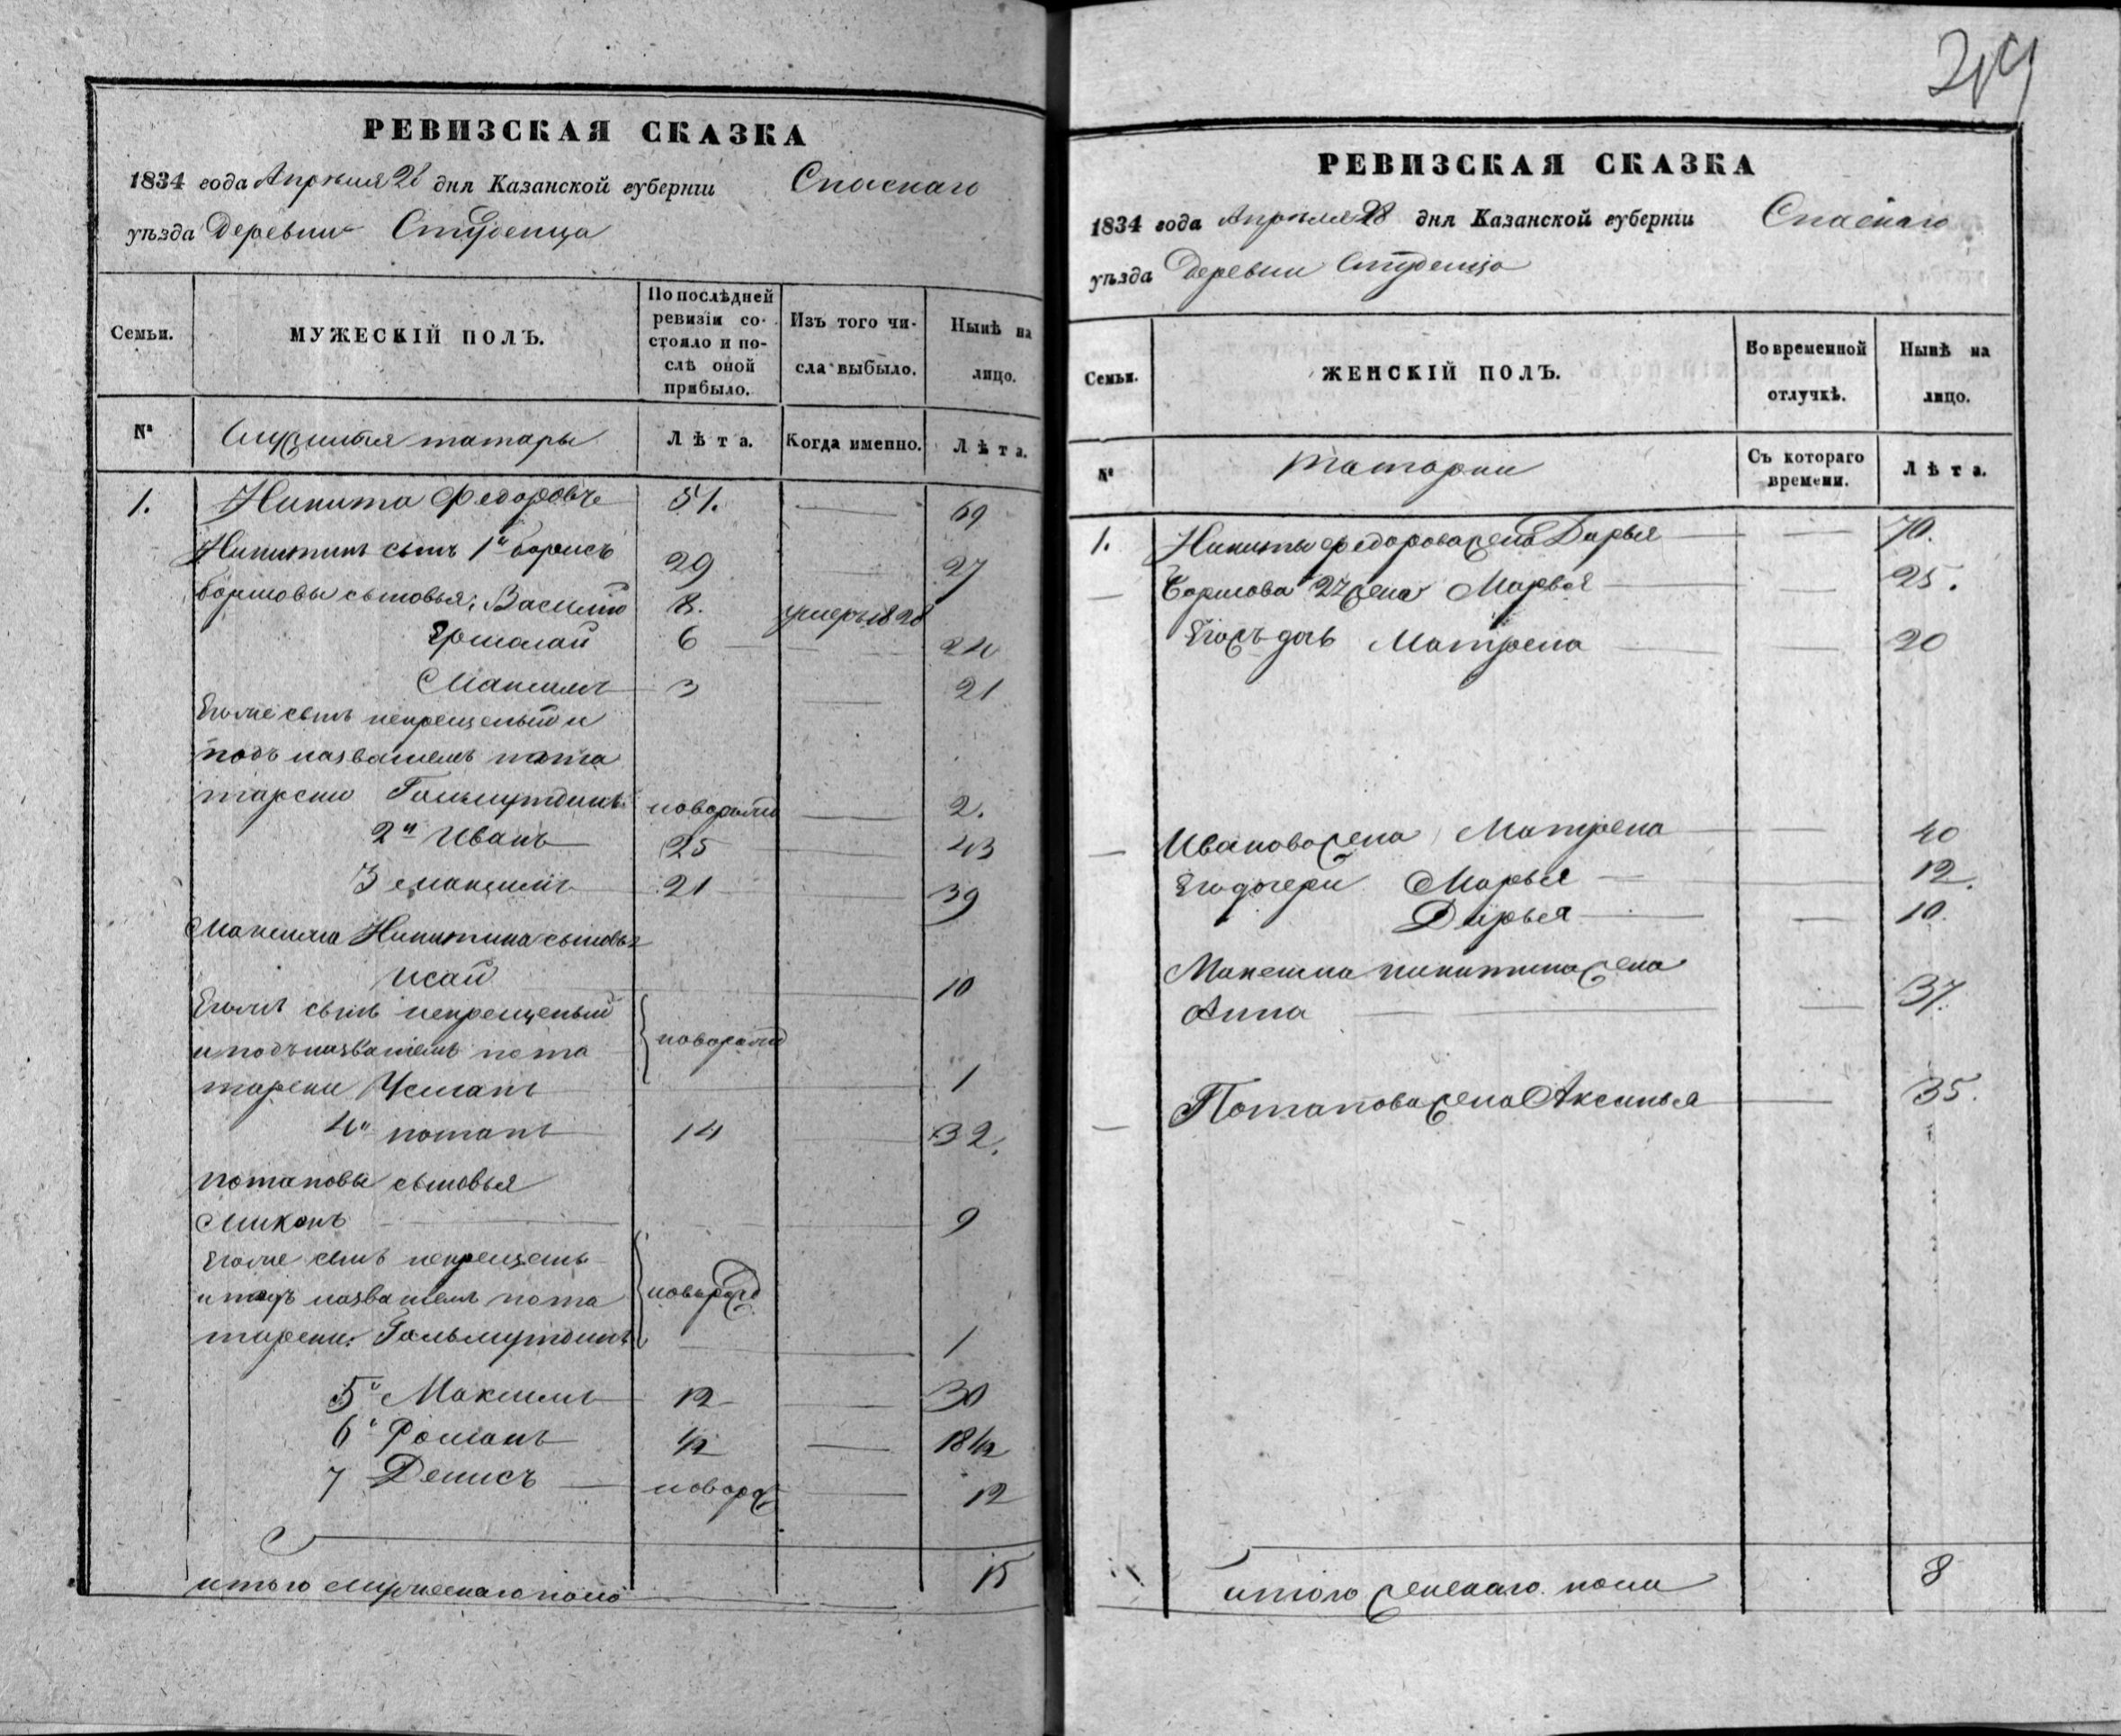 РЕВИЗСКАЯ СКАЗКА
1834 года Апрѣля 28 дня Казанской губерніи Спаскаго
уѣзда Деревни Студенца
Семьи.
МУЖЕСКІЙ ПОЛЪ.
По послѣдней ревизіи состояло и послѣ оной прибыло.
Изъ того числа выбыло.
Нынѣ на лицо.
№
татары
Лѣта.
Когда именно.
Лѣта.
1. Никита Федоровъ 51. 69
Никитинъ сынъ 1й Борисъ 29 27
Борисовы сыновья: Василий 8. умеръ 1828
Ермолай 6 24
Максимъ 3 21
Егоже сынъ некрещеный и
подъ названіемъ пота
тарски новорожд 2.
2й Иванъ 25 43
3 Максимъ 21 39
Максима Никитина сыновья
Исай 10
Егоже сынъ некрещеный
и подъ названіемъ пота новорожд
тарски Усманъ 1
4й Потапъ 14 32.
Потаповы сыновья
9
Егоже сынъ некрещены
и подъ названіемъ пота новорожд
тарски 1
5й Максимъ 12 30
6й Романъ 1/2 18 1/2
7 Денисъ новорж 12
итого мужескаго пола 15
219
РЕВИЗСКАЯ СКАЗКА
1834 года Апрѣля 28 дня Казанской губерніи Спаскаго
уѣзда Деревни Студенца
Семьи.
ЖЕНСКІЙ ПОЛЪ.
Во временной отлучкѣ.
Нынѣ на лицо.
№
татарки
Съ котораго времени.
Лѣта.
1. Никиты Федорова жена Дарья 70.
Борисова 2 жена Марья 25.
Егожъ дочь Матрена 20
Иванова жена Матрена 40
Его дочери Марья 12.
Дарья 10.
Максима Никитина жена
Анна 37.
Потапова жена Аксинья 35.
итого женскаго пола 8